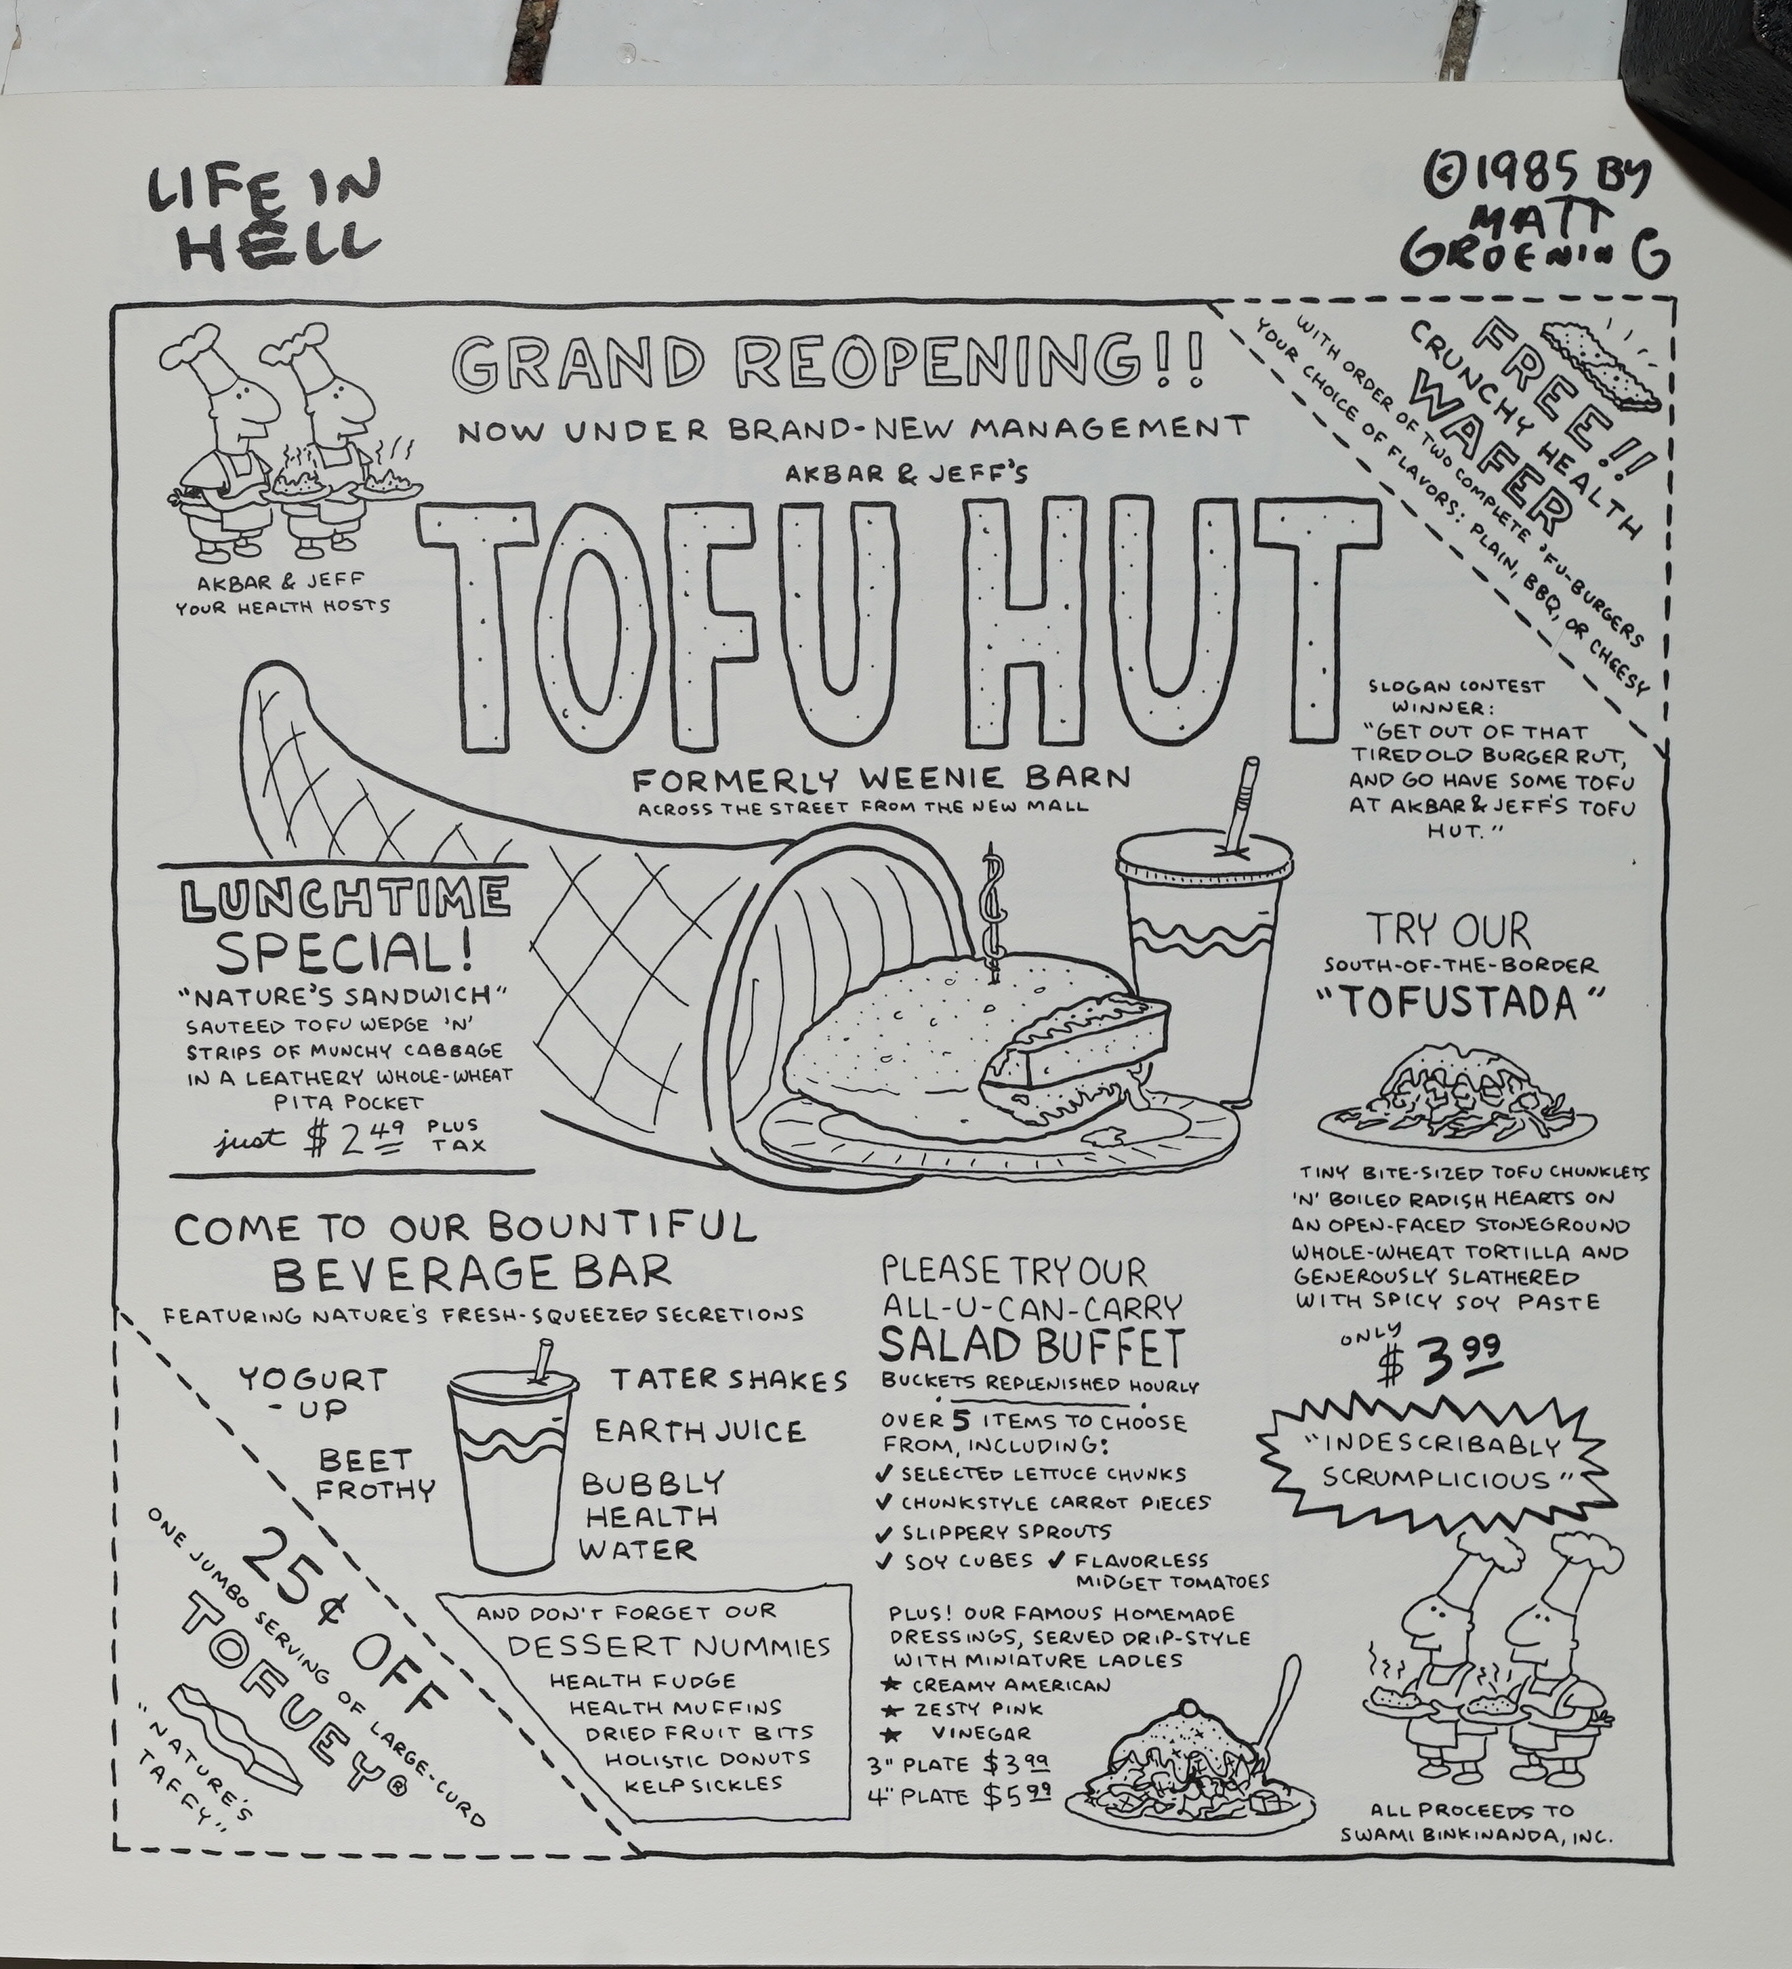 LIFE IN
HELL
©1985 BY
MATT
GROENING
GRAND REOPENING!!
NOW UNDER BRAND-NEW MANAGEMENT
AKBAR & JEFF'S
TOFU HUT
FORMERLY WEENIE BARN
ACROSS THE STREET FROM THE NEW MALL
AKBAR & JEFF
YOUR HEALTH HOSTS
FREE!!
CRUNCHY HEALTH
WAFER
WITH ORDER OF TWO COMPLETE 'FU-BURGERS
YOUR CHOICE OF FLAVORS: PLAIN, BBQ, OR CHEESY
SLOGAN CONTEST
WINNER:
"GET OUT OF THAT
TIRED OLD BURGER RUT,
AND GO HAVE SOME TOFU
AT AKBAR & JEFF'S TOFU
HUT."
LUNCHTIME
SPECIAL!
"NATURE'S SANDWICH"
SAUTEED TOFU WEDGE 'N'
STRIPS OF MUNCHY CABBAGE
IN A LEATHERY WHOLE-WHEAT
PITA POCKET
just $2.49 PLUS
TAX
TRY OUR
SOUTH-OF-THE-BORDER
"TOFUSTADA"
TINY BITE-SIZED TOFU CHUNKLETS
'N' BOILED RADISH HEARTS ON
AN OPEN-FACED STONEGROUND
WHOLE-WHEAT TORTILLA AND
GENEROUSLY SLATHERED
WITH SPICY SOY PASTE
ONLY
$3 99
"INDESCRIBABLY
SCRUMPLICIOUS"
COME TO OUR BOUNTIFUL
BEVERAGE BAR
FEATURING NATURE'S FRESH-SQUEEZED SECRETIONS
YOGURT
-UP
BEET
FROTHY
TATER SHAKES
EARTH JUICE
BUBBLY
HEALTH
WATER
PLEASE TRY OUR
ALL-U-CAN-CARRY
SALAD BUFFET
BUCKETS REPLENISHED HOURLY
OVER 5 ITEMS TO CHOOSE
FROM, INCLUDING:
✓ SELECTED LETTUCE CHUNKS
✓ CHUNKSTYLE CARROT PIECES
✓ SLIPPERY SPROUTS
✓ SOY CUBES ✓ FLAVORLESS
MIDGET TOMATOES
PLUS! OUR FAMOUS HOMEMADE
DRESSINGS, SERVED DRIP-STYLE
WITH MINIATURE LADLES
★ CREAMY AMERICAN
★ ZESTY PINK
★ VINEGAR
3" PLATE $3 99
4" PLATE $5 99
25¢ OFF
ONE JUMBO SERVING OF LARGE-CURD
TOFUEY®
"NATURE'S
TAFFY"
AND DON'T FORGET OUR
DESSERT NUMMIES
HEALTH FUDGE
HEALTH MUFFINS
DRIED FRUIT BITS
HOLISTIC DONUTS
KELPSICKLES
ALL PROCEEDS TO
SWAMI BINKINANDA, INC.